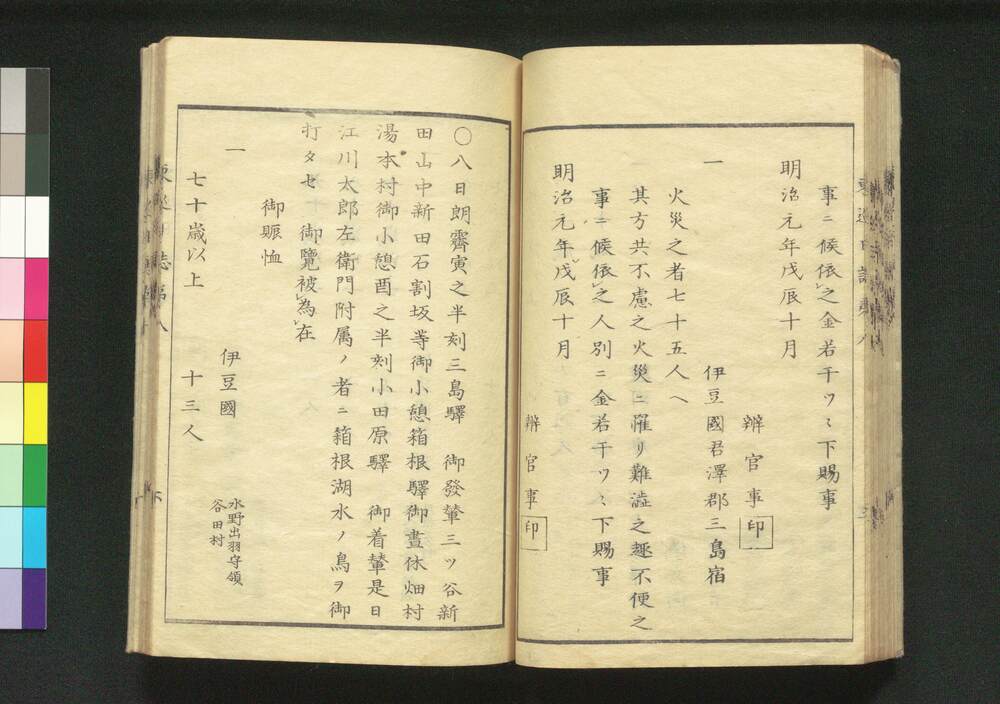 事ニ候依レ之金若干ツヽ下賜事
明治元年戊辰十月
辨官事 印
一
伊豆國君澤郡三島宿
火災之者七十五人ヘ
其方共不慮之火災ニ罹リ難澁之趣不便之
事ニ候依レ之人別ニ金若干ツヽ下賜事
明治元年戊辰十月
辨官事 印
〇八日朗霽寅之半刻三島驛 御發輦三ツ谷新
田山中新田石割坂等御小憩箱根驛御晝休畑村
湯本村御小憩酉之半刻小田原驛 御着輦是日
江川太郎左衛門附属ノ者ニ箱根湖水ノ鳥ヲ御
打タセ 御覽被レ為レ在
御賑恤
一
伊豆國
水野出羽守領
谷田村
七十歳以上 十三人